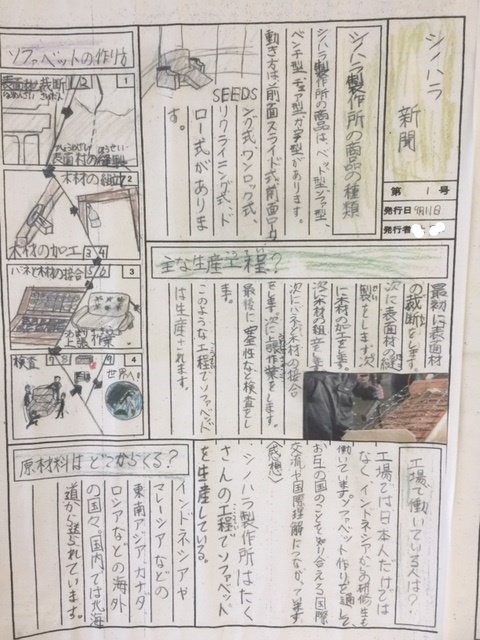 シノハラ
新聞
第 1 号
発行日 9月11日
発行者
シノハラ製作所の商品の種類
シノハラ製作所の商品は、ベッド型、ソファ型、
ベンチ型、チェア型、カ字型があります。
動き方は、前面スライド式、前面ロー
リング式、ワンロック式、
リクライニング式、ド
ロー式がありま
す。
SEEDS
ソファベットの作り方
表面材の裁断
1 2
1
表面材の縫製
木材の組立
2
木材の加工
3 4
バネと木材の接合
5 6
3
上張作業
検査
7 8
4
世界へ!
主な生産工程?
最初に表面材
の裁断をします。
次に表面材の縫
製をします。次
に木材の加工をします。
次に木材の組立をします。
次にバネと木材の接合
をします。次に上張作業をします。
最後に、安全性など検査をし
ます。
このような工程でソファベッド
は生産されます。
工場で働いている人は?
工場では日本人だけでは
なく、インドネシアからの研修生も
働いています。ソファベット作りを通して
お互の国のことを知り合える国際
交流や国際理解につながっています。
〈感想〉
シノハラ製作所はたく
さんの工程でソファベッド
を生産している。
原材料はどこからくる?
インドネシアや
マレーシアなどの
東南アジア、カナダ、
ロシアなどの海外
の国々、国内では北海
道から送られています。